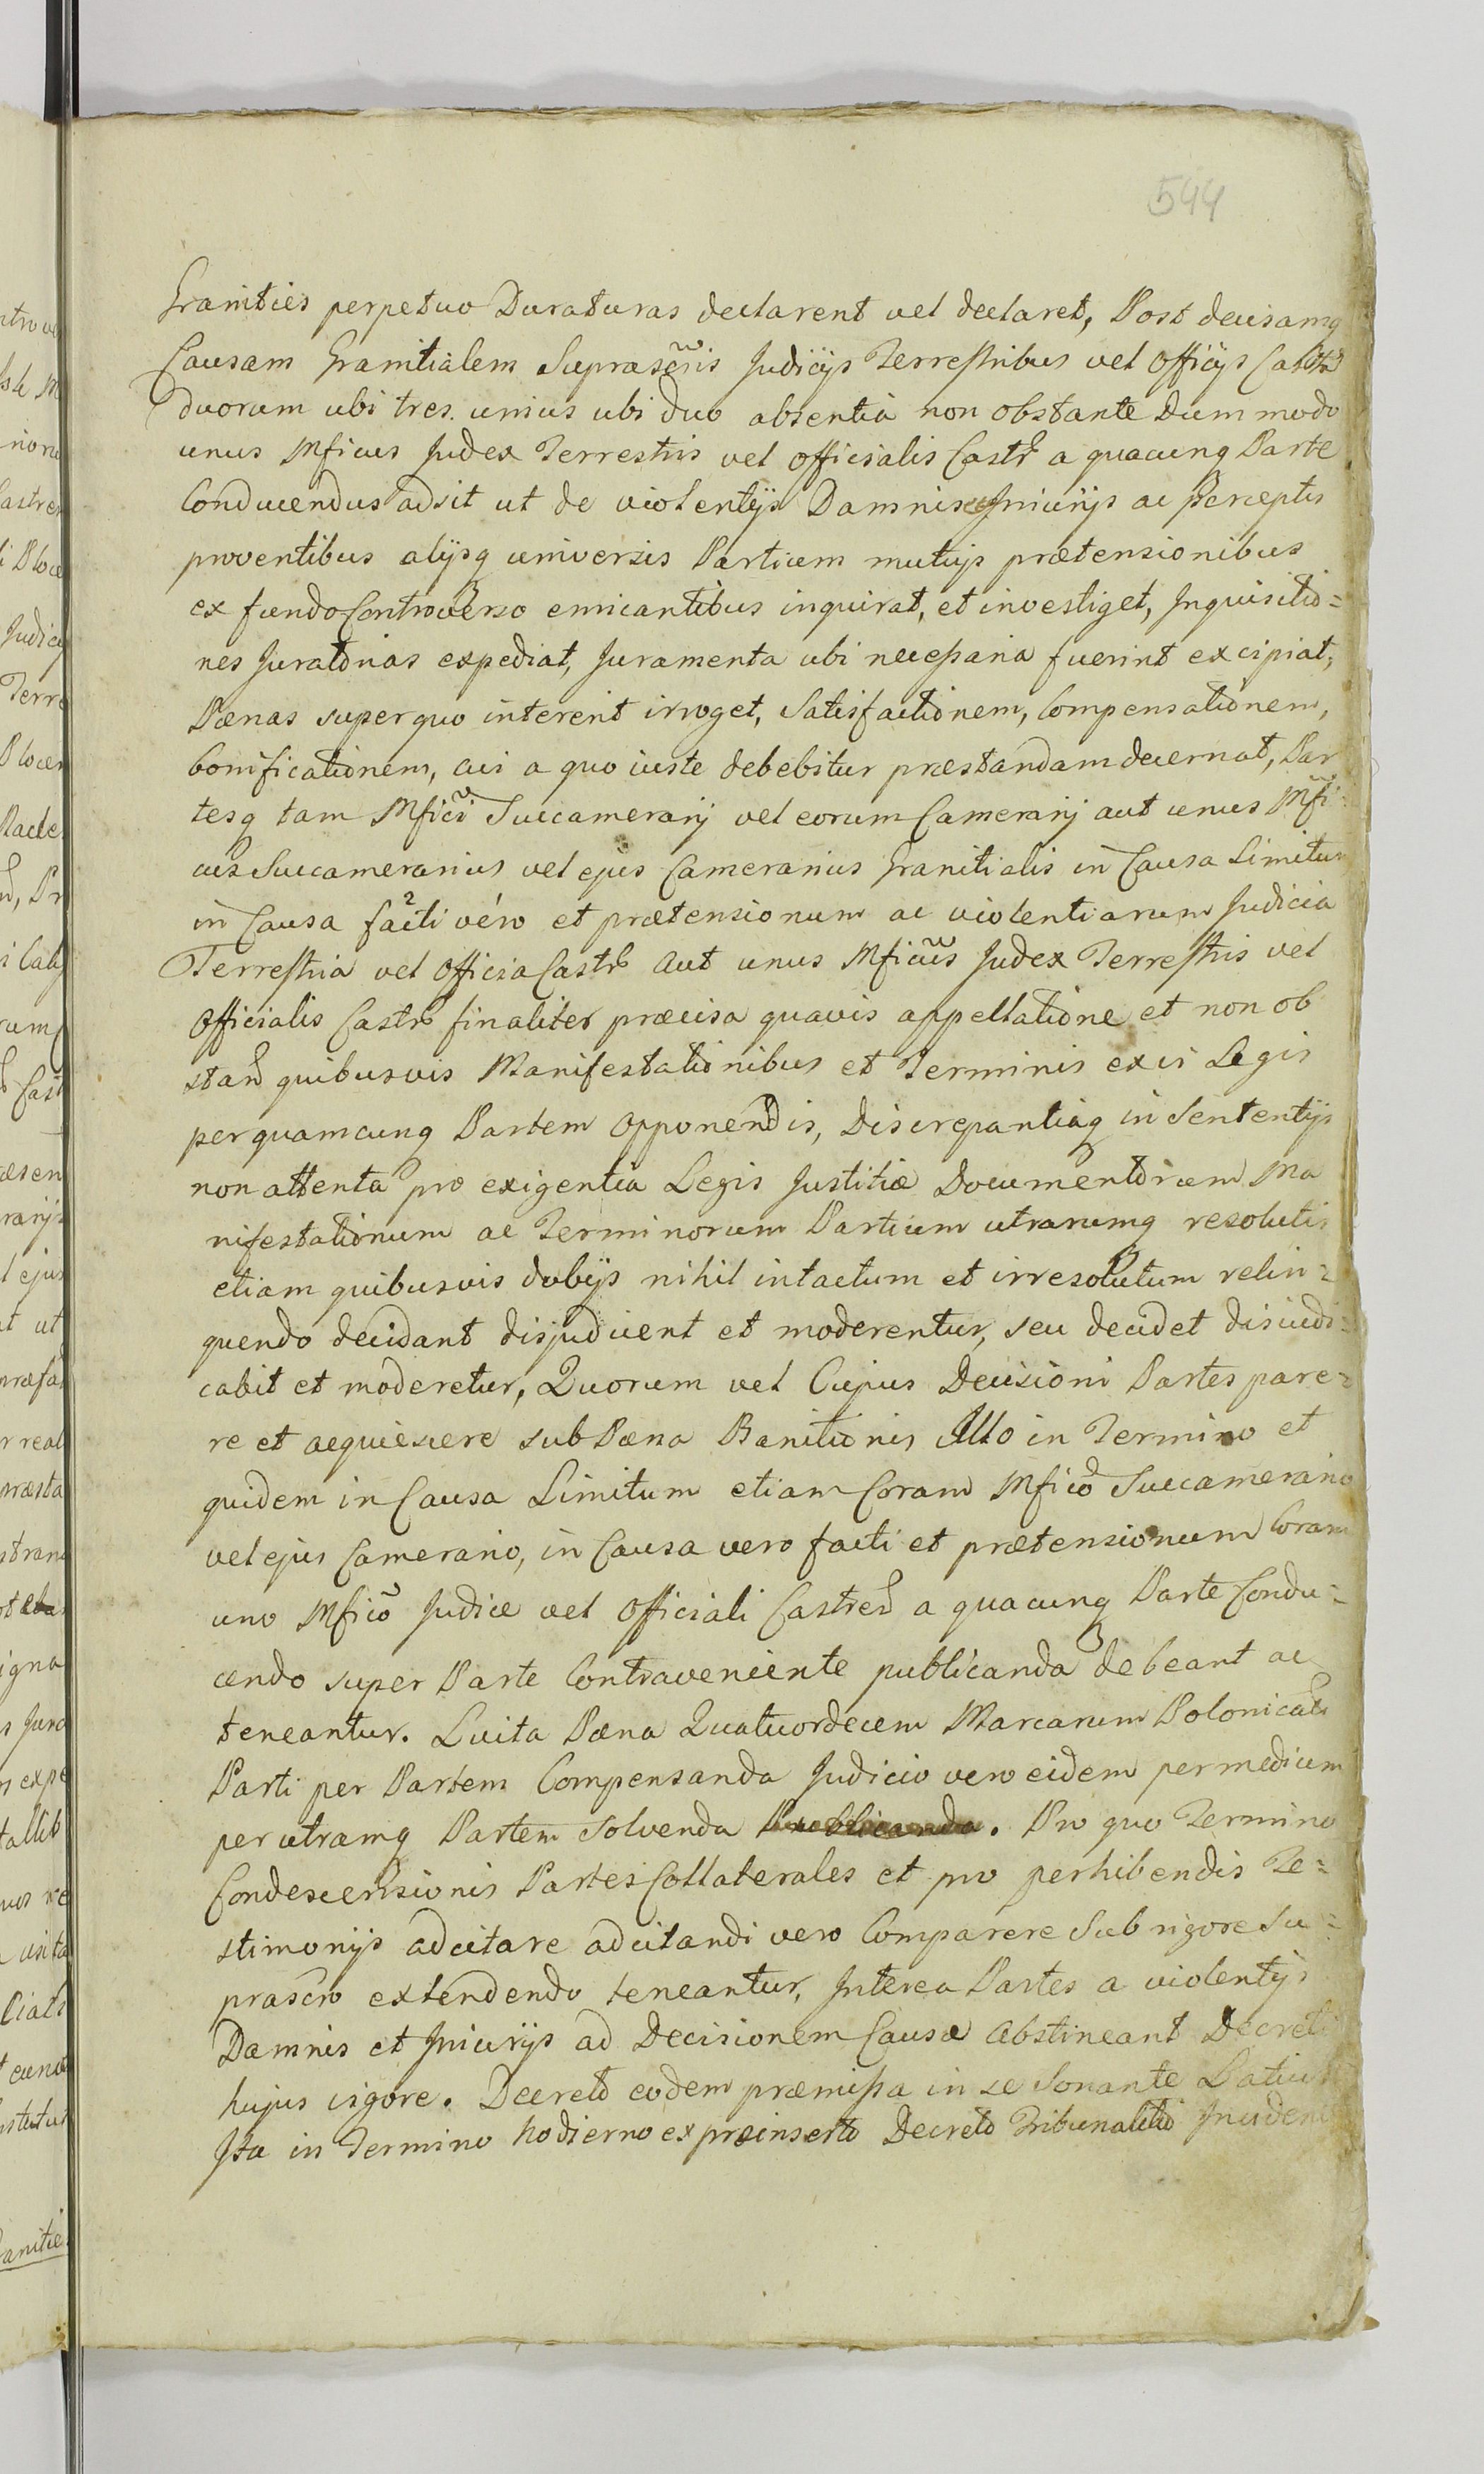 544
Granities perpetuo Duraturas declarent vel declaret, Post decisamq
Causam Granitialem Suprascris Judicijs Terrestribus vel Officijs Castr
duorum ubi tres. unius ubi duo absentia non obstante Dum modo
unus Mficus Judex Terrestris vel Officialis Castr a quacunq Parte
Conducendus adsit ut de violentijs Damnis Injurijs ac perceptis
proventibus alijsq universis Partium mutuijs prætensionibus
ex fundo Controverso emicantibus inquirat, et investiget, Inquisitio=
nes Juratorias expediat, Juramenta ubi necessaria fuerint excipiat,
Pænas super quo intererit irroget, Satisfactionem, Compensationem,
bonificationem, cui a quo iuste debebitur præstandam decernat, Par
tesq tam Mfici Succamerarij vel eorum Camerarij aut unus Mfi=
cus Succamerarius vel ejus Camerarius Granitialis in Causa Limitum
in Causa facti vero et prætensionum ac violentiarum Judicia
Terrestria vel Officia Castr Aut unus Mficus Judex Terrestris vel
Officialis Castr finaliter præcisa quavis appellatione et non ob
stan quibusvis Manifestationibus et Terminis ex is Legis
per quamcunq Partem Opponendis, Discrepantiaq in Sententijs
non attenta pro exigentia Legis Justitiæ Documentorum Ma
nifestationum ac Terminorum Partium utrarumq resolutis
etiam quibusvis dubijs nihil intactum et irresolutum relin=
quendo decidant disjudicent et moderentur, seu decidet disiudi=
cabit et moderetur, Quorum vel Cujus Decisioni Partes pare=
re et acquiescere sub Pæna Banitionis Illo in Termino et
quidem in Causa Limitum etiam Coram Mfico Succamerario
vel ejus Camerario, in Causa vero facti et prætensionum Coram
uno Mfico Judice vel Officiali Castren a quacunq Parte Condu=
cendo super Parte Contraveniente publicanda debeant ac
teneantur. Luita Pæna Quatuordecem Marcarum Polonicals
Parti per Partem Compensanda Judicio vero eidem per medium
per utramq Partem Solvenda Publicanda. Pro quo Termino
Condescensionis Partes Collaterales et pro perhibendis Te=
stimonijs adcitare adcitandi vero Comparere Sub rigore Su=
prascro extendendo teneantur, Interea Partes a violentijs
Damnis et Iniurijs ad Decisionem Causæ Abstineant Decreti
hujus vigore. Decreto eodem præmissa in se Sonante Latius
Ita in Termino hodierno ex præinserto Decreto Tribunalitio Inciden